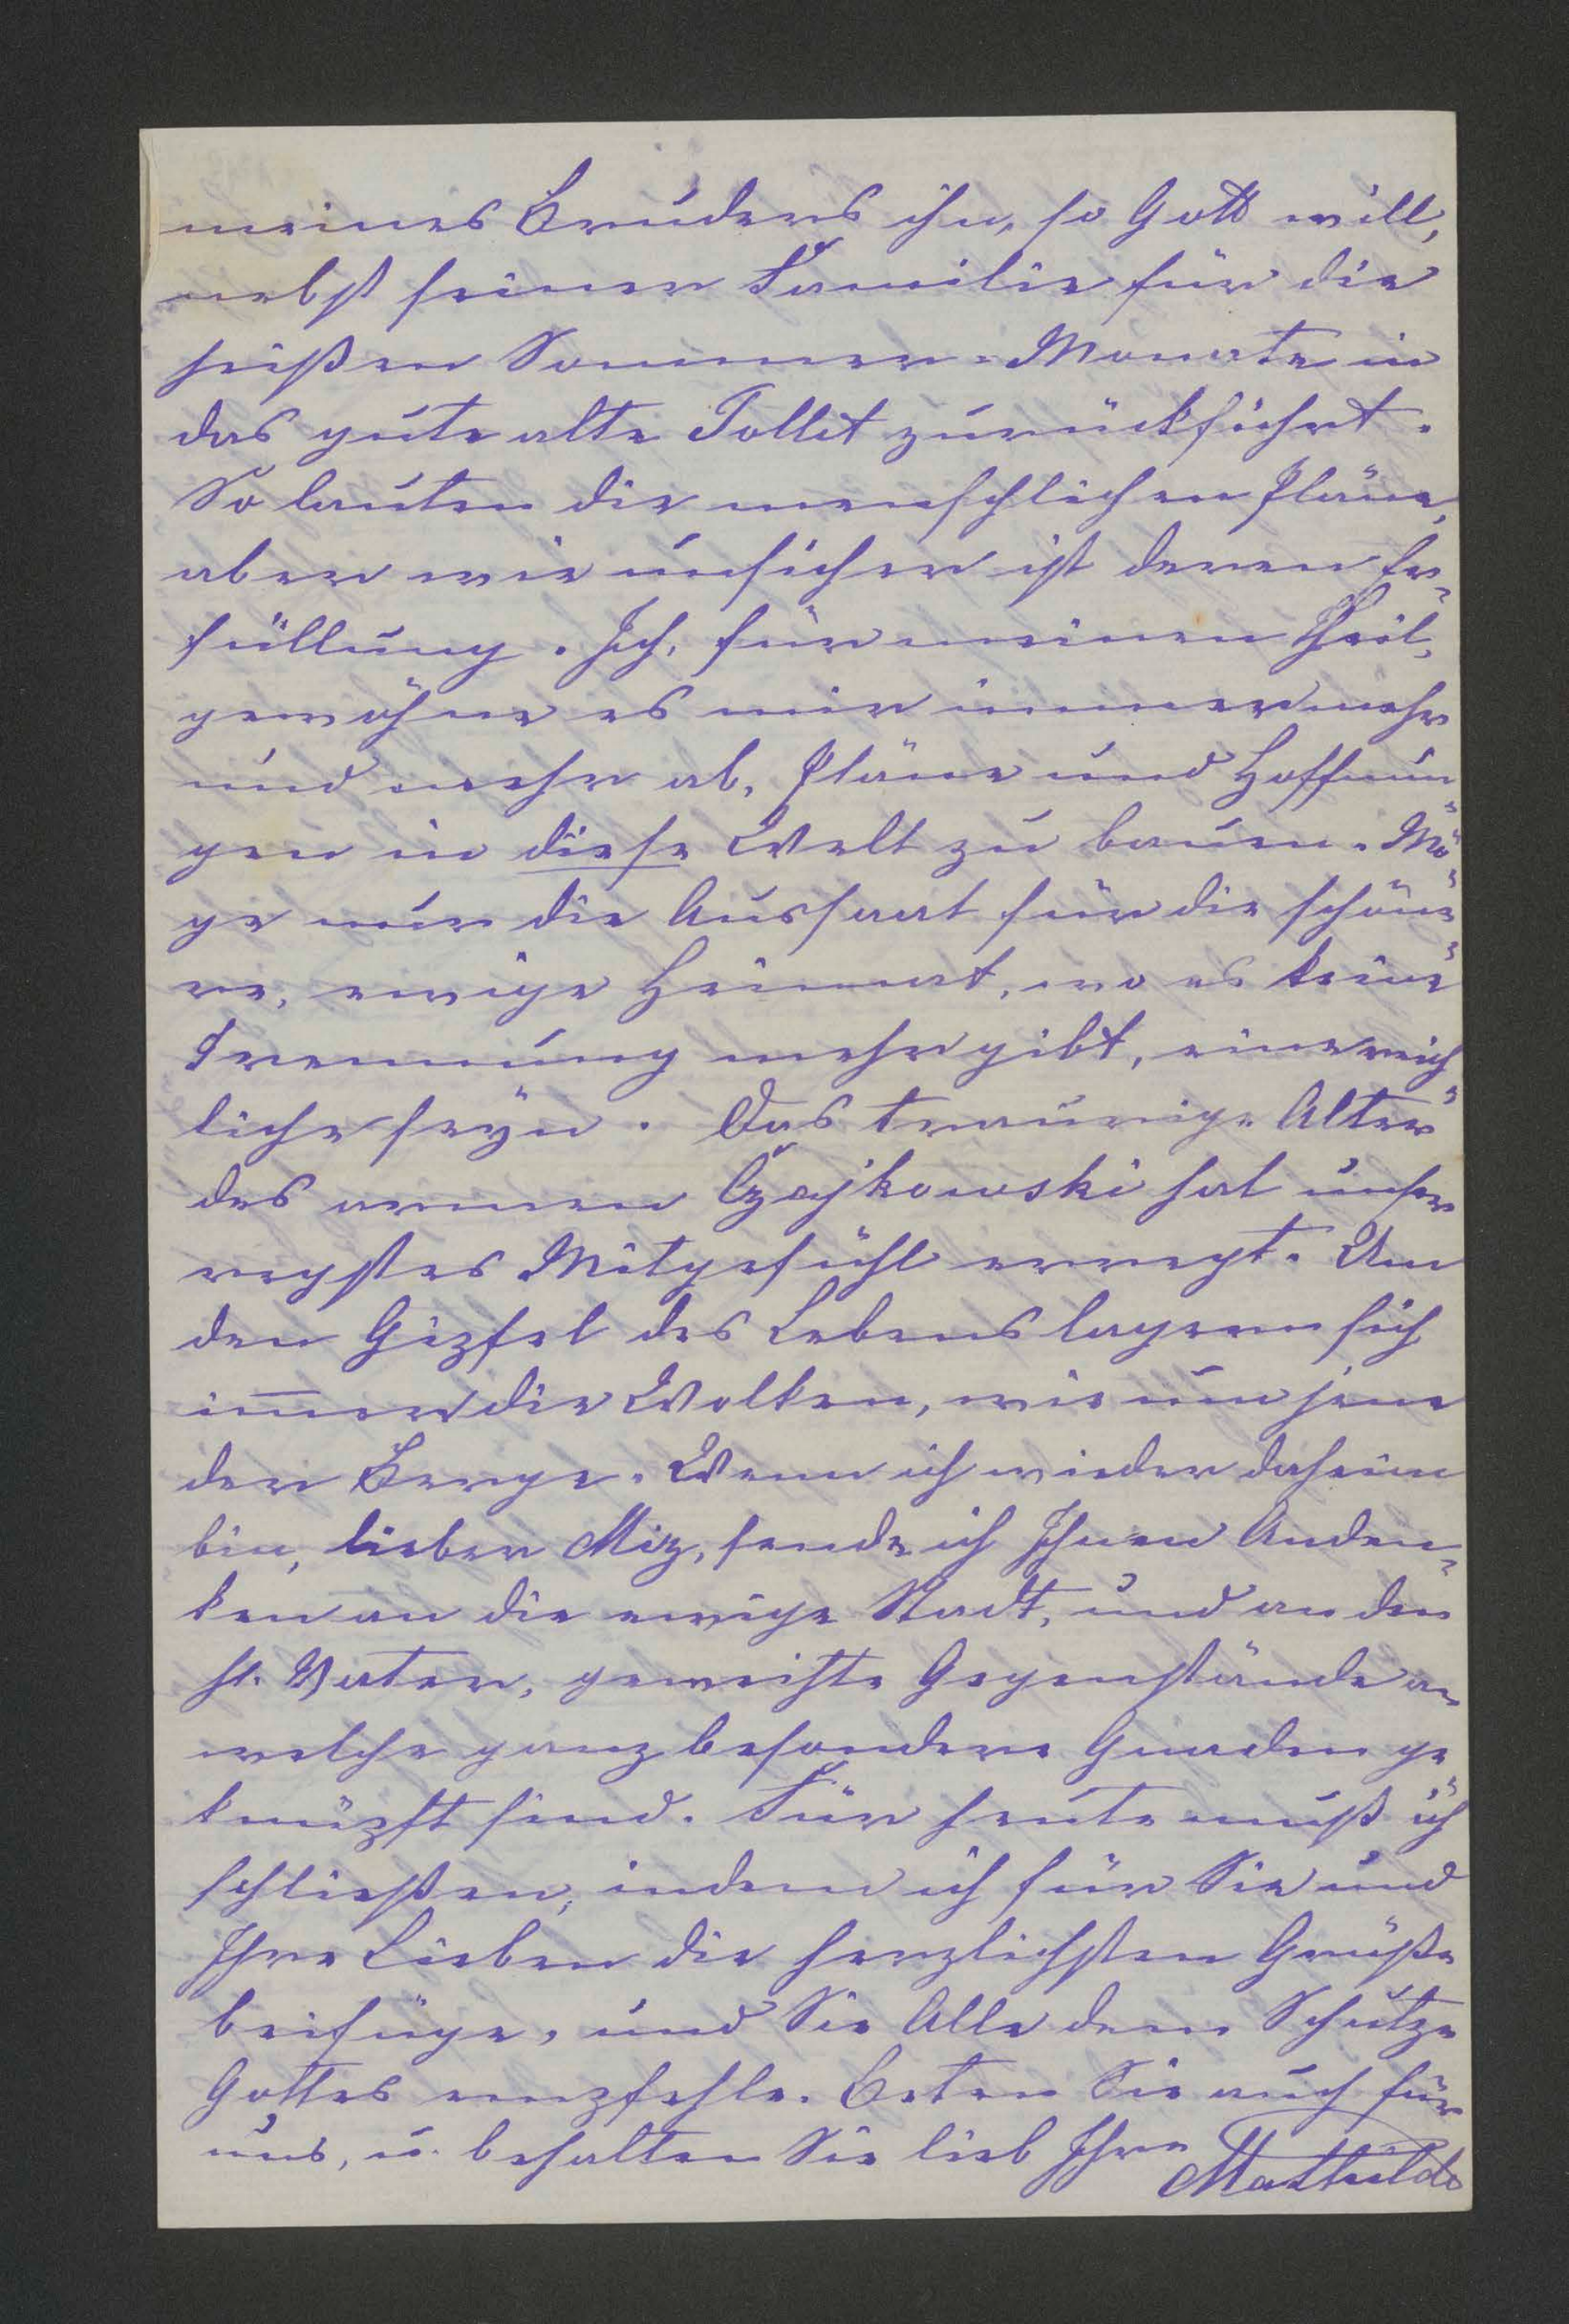 meines Bruders ihn, so Gott will,
nebst seiner Familie für die
heißen Sommer-Monate in
das gute alte Tollet zurückführt.
So lauten die menschlichen Pläne,
aber wie unsicher ist deren Er-
füllung. Ich, für meinen Theil,
gewöhne es mir immer mehr
und mehr ab, Pläne und Hoffnun
gen in diese Welt zu bauen. Mö-
ge nur die Aussaat für die schöne-
re, ewige Heimat, wo es keine
Trennung mehr gibt, eine reich-
liche seyn. Das traurige Alter
des armen Czajkowski hat unser
regstes Mitgefühl erregt. Um
den Gipfel des Lebens lagern sich
im̅er die Wolken, wie um jene
der Berge. Wenn ich wieder daheim
bin, lieber Miz, sende ich Ihnen Anden-
ken an die ewige Stadt, und an den
hl. Vater, geweihte Gegenstände an
welche ganz besondere Gnaden ge-
knüpft sind. Für heute muß ich
schließen, indem ich für Sie und
Ihre Lieben die herzlichsten Grüße
beifüge, und Sie Alle dem Schutze
Gottes empfehle. Beten Sie auch für
uns, u. behalten Sie lieb Ihre
Mathilde